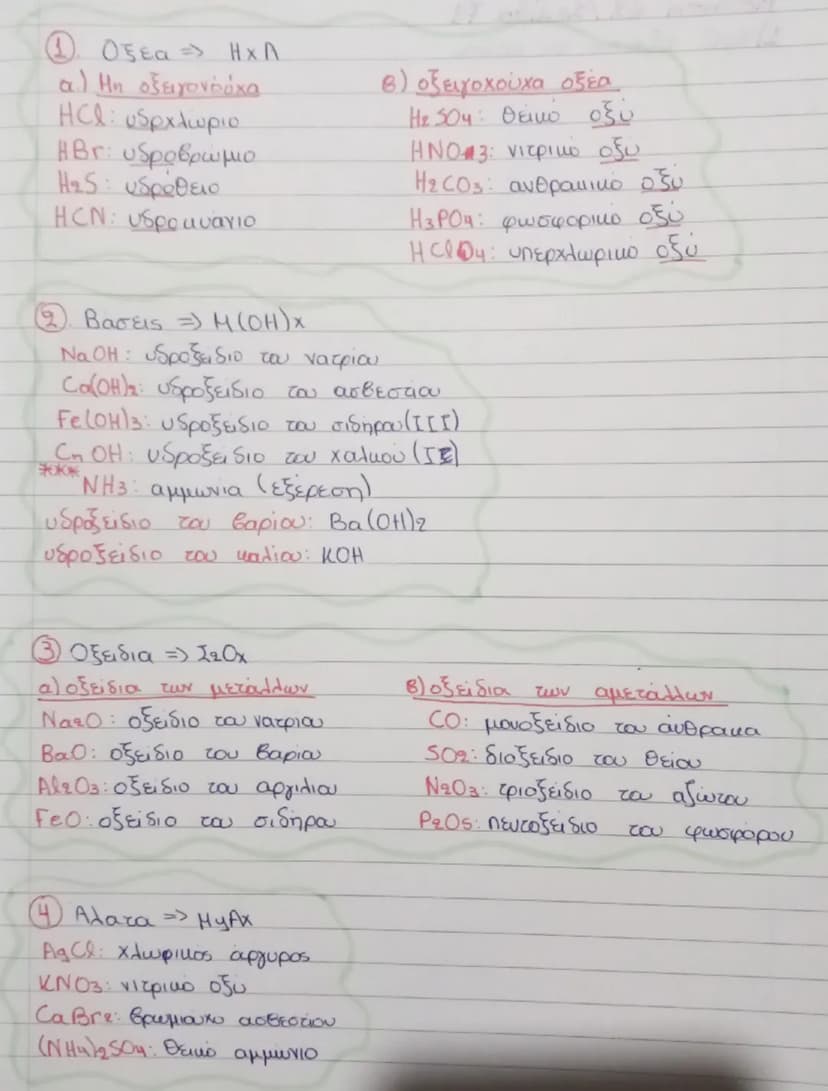 ① Οξέα => HxA
α) Μη οξυγονούχα
HCl: υδρχλωριο
HBr: υδροβρωμιο
H2S: υδρόθειο
HCN: υδροκυάνιο
β) οξυγονούχα οξέα
H2SO4: θειικό οξύ
HNO3: νιτρικό οξύ
H2CO3: ανθρακικό οξύ
H3PO4: φωσφορικό οξύ
HClO4: υπερχλωρικό οξύ
② Βασεις => M(OH)x
NaOH: υδροξείδιο του νατρίου
Ca(OH)2: υδροξείδιο του ασβεστίου
Fe(OH)3: υδροξείδιο του σιδήρου (III)
CuOH: υδροξείδιο του χαλκού (I)
*** NH3: αμμωνία (εξέρεση)
υδροξείδιο του βαρίου: Ba(OH)2
υδροξείδιο του καλίου: KOH
③ Οξειδια => Σ2Οx
α) οξείδια των μετάλλων
Na2O: οξείδιο του νατρίου
BaO: οξείδιο του βαρίου
Al2O3: οξείδιο του αργιλιου
FeO: οξείδιο του σιδήρου
β) οξείδια των αμετάλλων
CO: μονοξείδιο του άνθρακα
SO2: διοξείδιο του θείου
N2O3: τριοξείδιο του αζώτου
P2O5: πεντοξείδιο του φωσφόρου
④ Αλατα => MyAx
AgCl: χλωρικος άργυρος
KNO3: νιτρικό οξύ
CaBr2: βρωμιουχο ασβεστιου
(NH4)2SO4: θειικό αμμώνιο